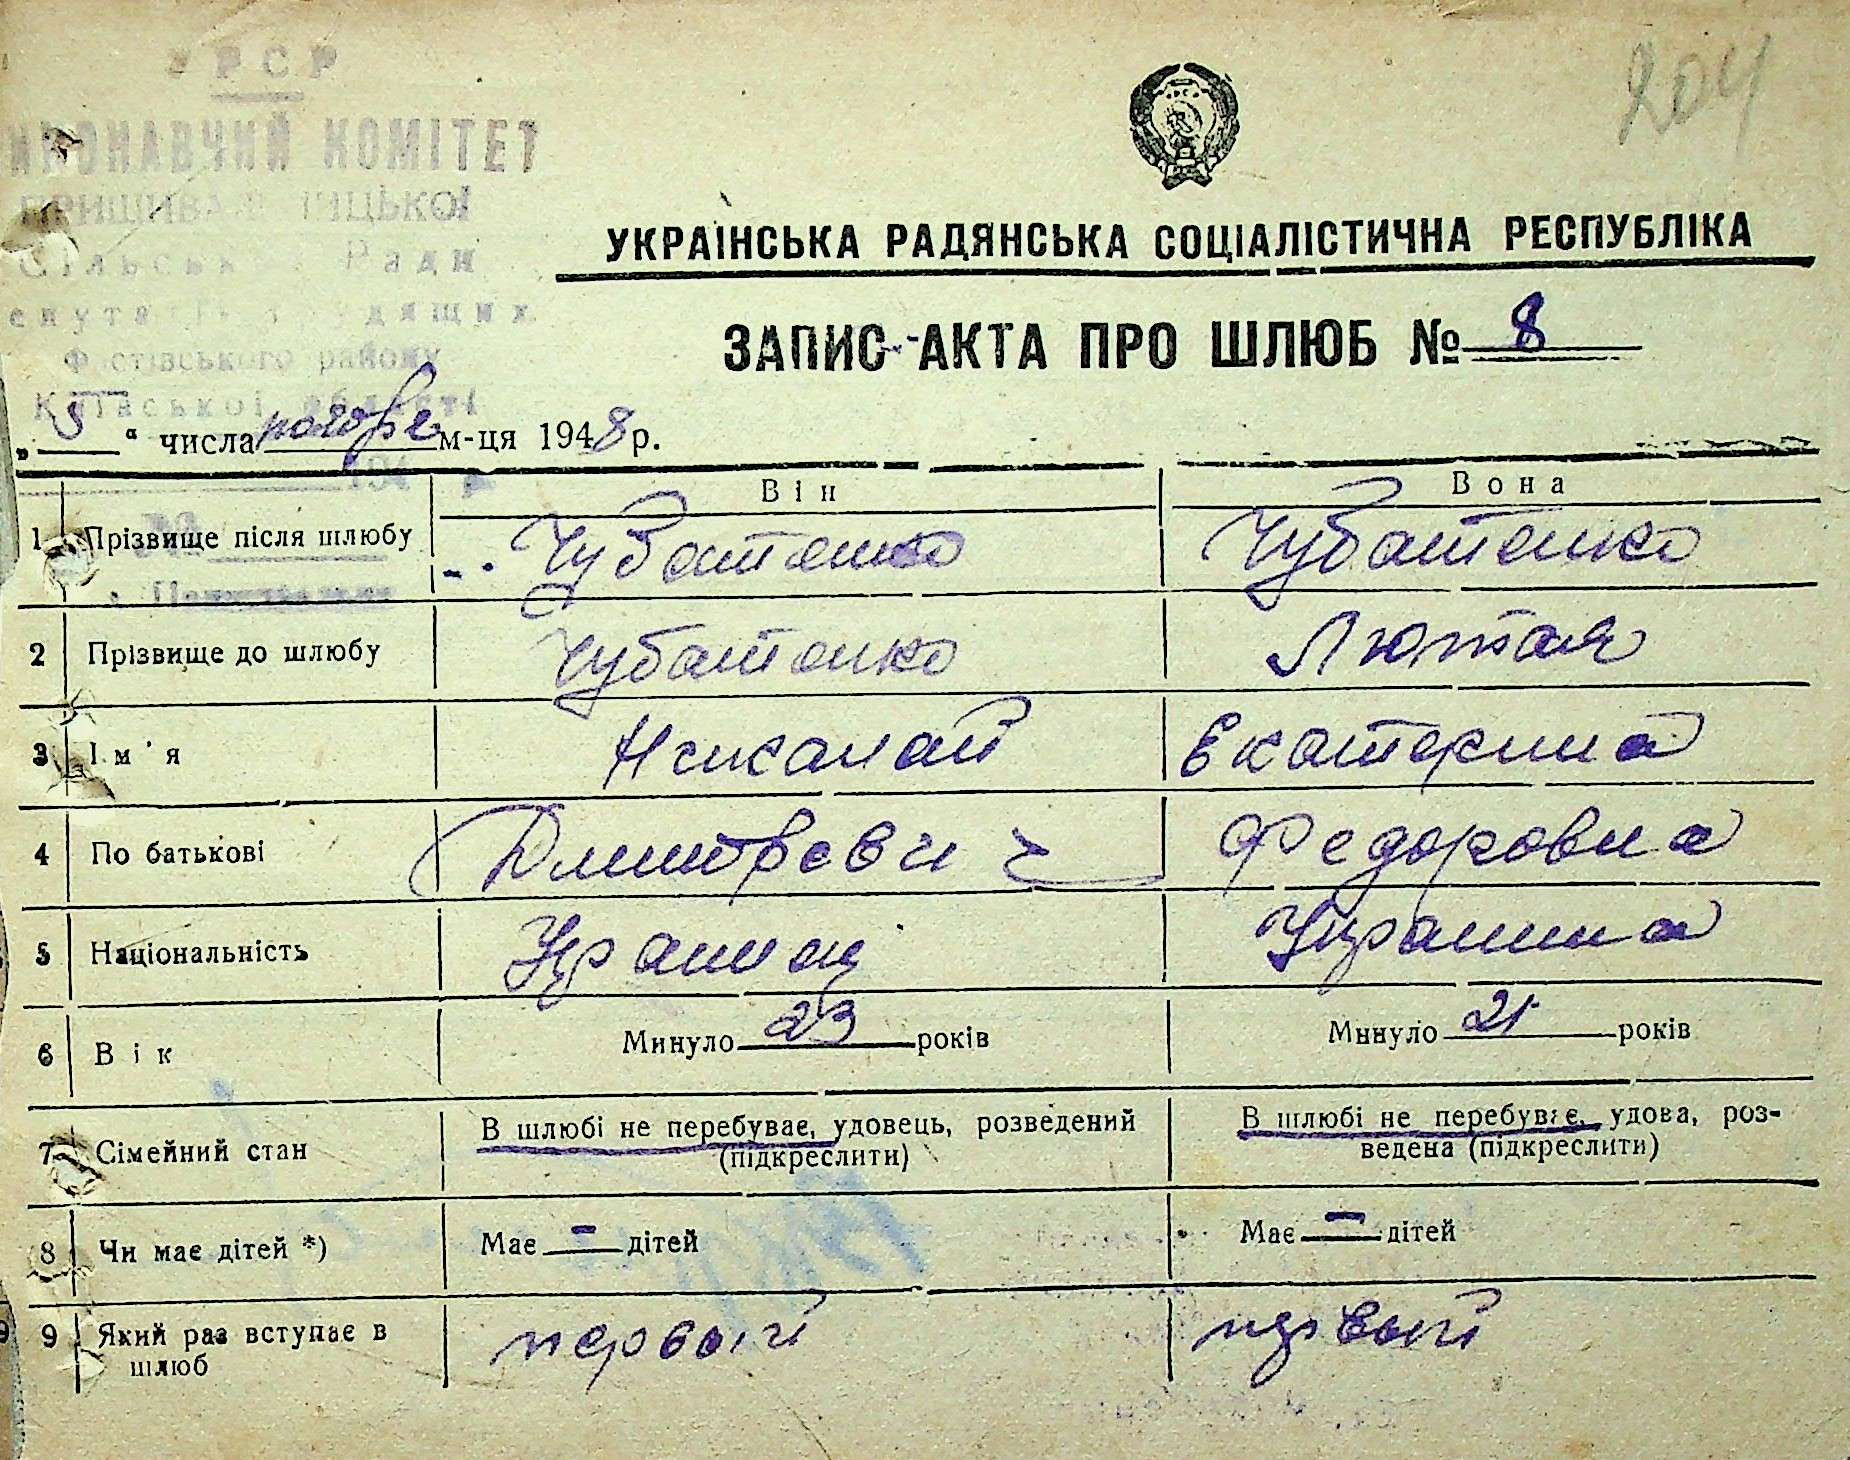 РСР
КОМІТЕТ
Сільської Ради
Фастівського району
Київської області
204
УКРАЇНСЬКА РАДЯНСЬКА СОЦІАЛІСТИЧНА РЕСПУБЛІКА
ЗАПИС АКТА ПРО ШЛЮБ № 8
„5“ числа ноября м-ця 1948 р.
Він Вона
1 Прізвище після шлюбу Чубатенко Чубатенко
2 Прізвище до шлюбу Чубатенко Лютая
3 Ім'я Николай Екатерина
4 По батькові Дмитревич Федоровна
5 Національність Украинец Украинка
6 Вік Минуло 23 років Минуло 21 років
7 Сімейний стан В шлюбі не перебуває, удовець, розведений (підкреслити) В шлюбі не перебуває, удова, роз-
ведена (підкреслити)
8 Чи має дітей *) Має — дітей Має — дітей
9 Який раз вступає в первый первый
шлюб